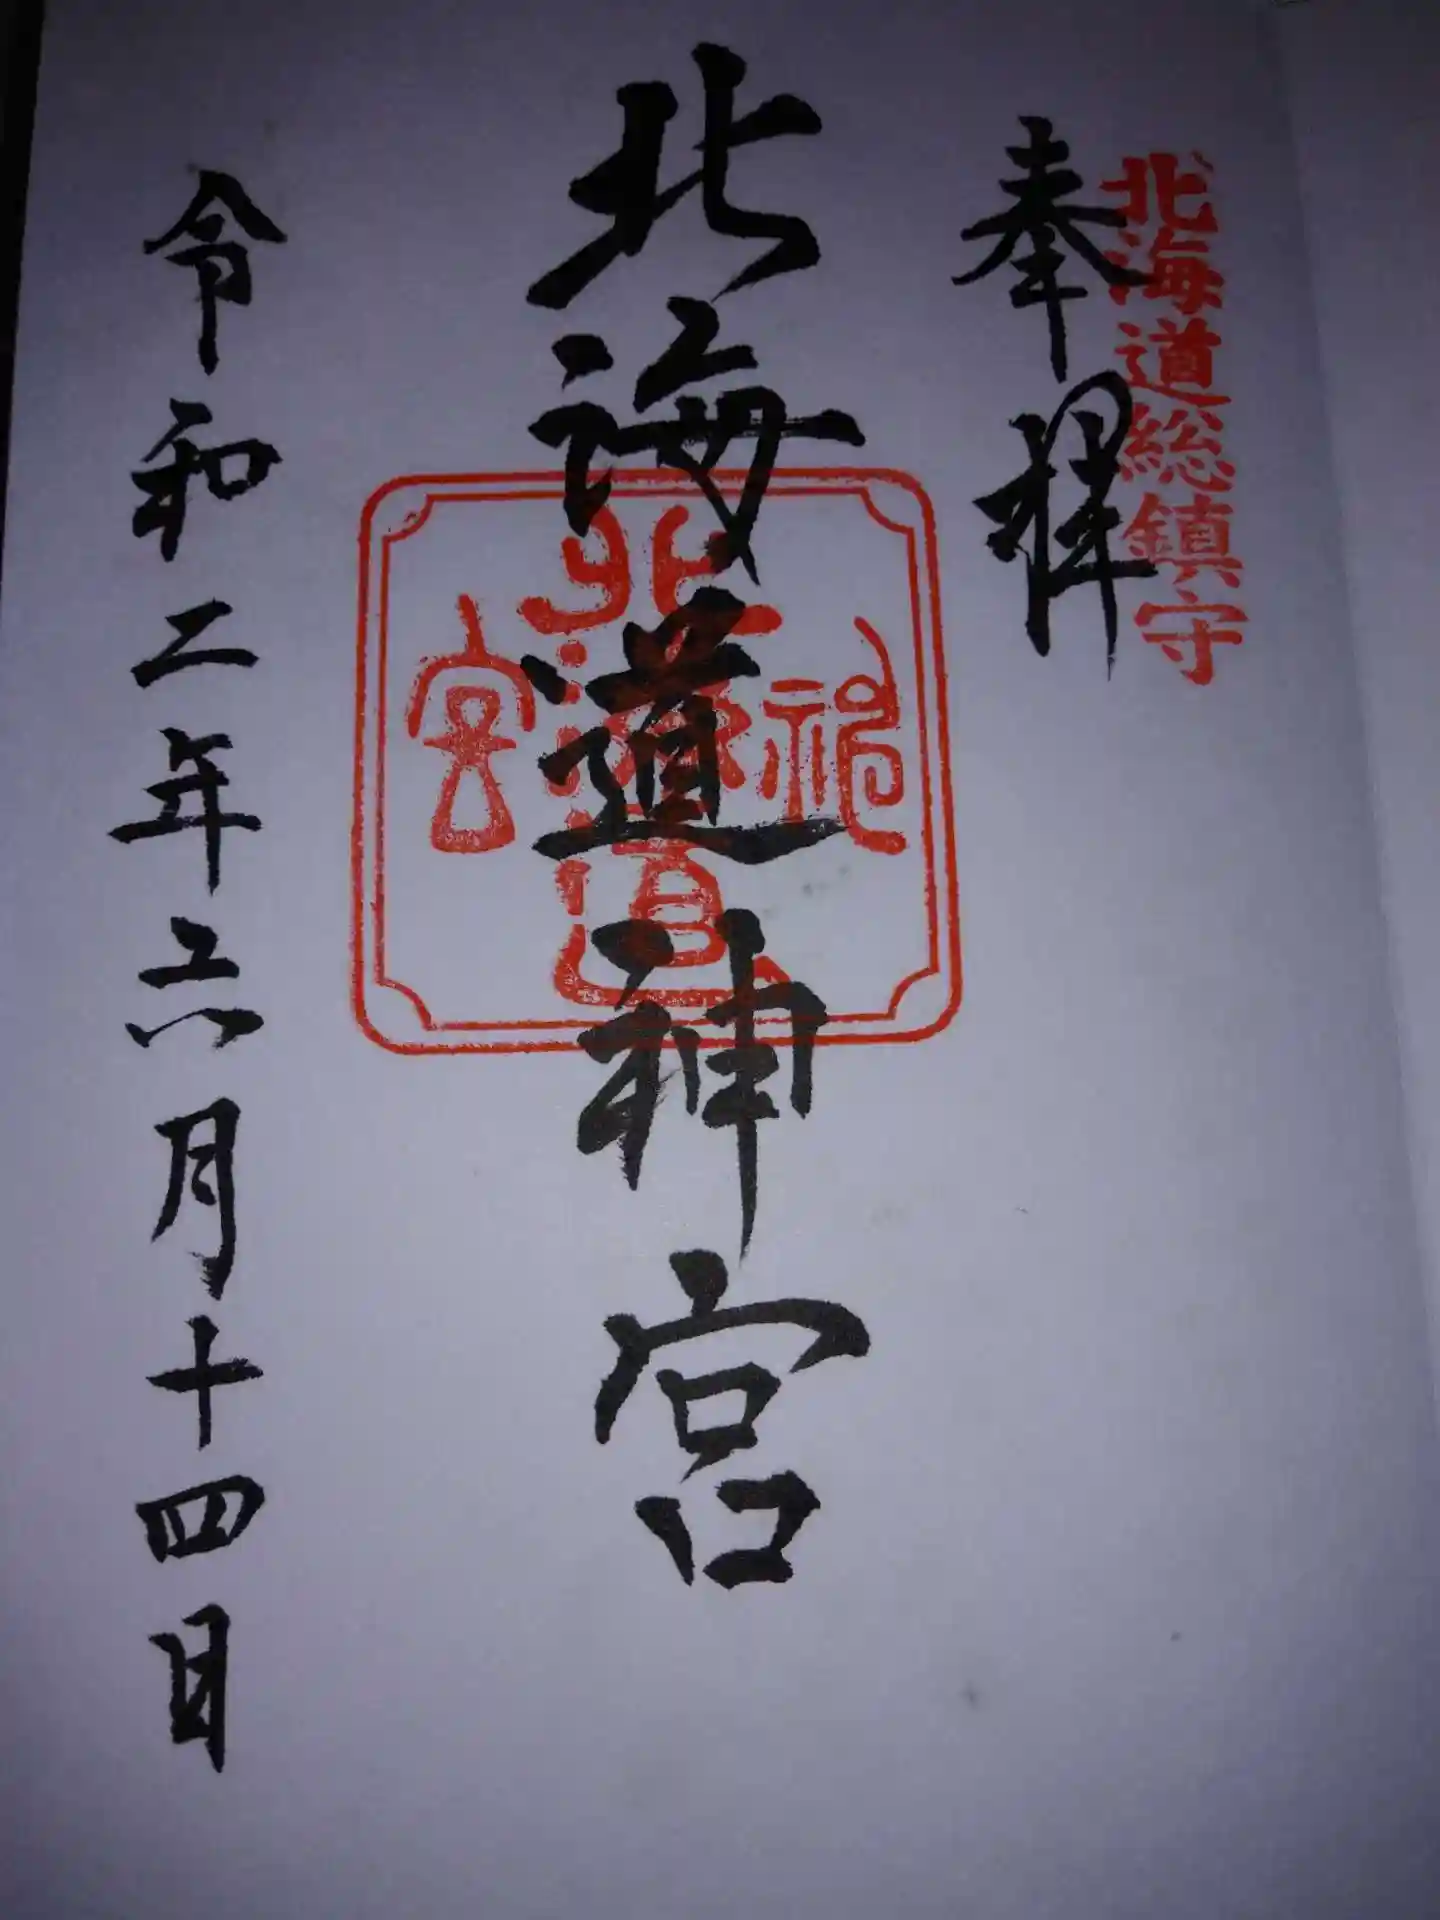 北海道総鎮守
奉拝
北海道神宮
令和二年六月十四日